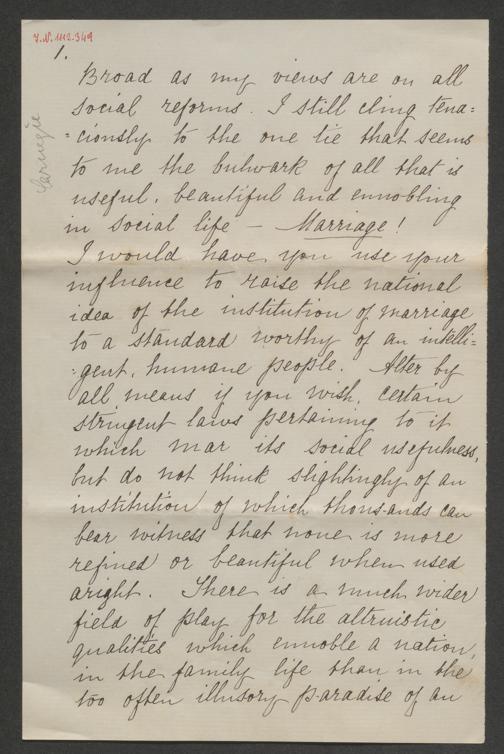 I.N. 1112.349
1.
Broad as my views are on all
social reforms. I still cling tena=
=ciously to the one tie that seems
to me the bulwark of all that is
useful, beautiful and ennobling
in social life — Marriage!
I would have you use your
influence to raise the national
idea of the institution of marriage
to a standard worthy of an intelli=
=gent, humane people. Alter by
all means if you wish, certain
stringent laws pertaining to it
which mar its social usefulness,
but do not think slightingly of an
institution of which thousands can
bear witness that none is more
refined or beautiful when used
aright. There is a much wider
field of play for the altruistic
qualities which ennoble a nation,
in the family life than in the
too often illusory paradise of an
Carnegie